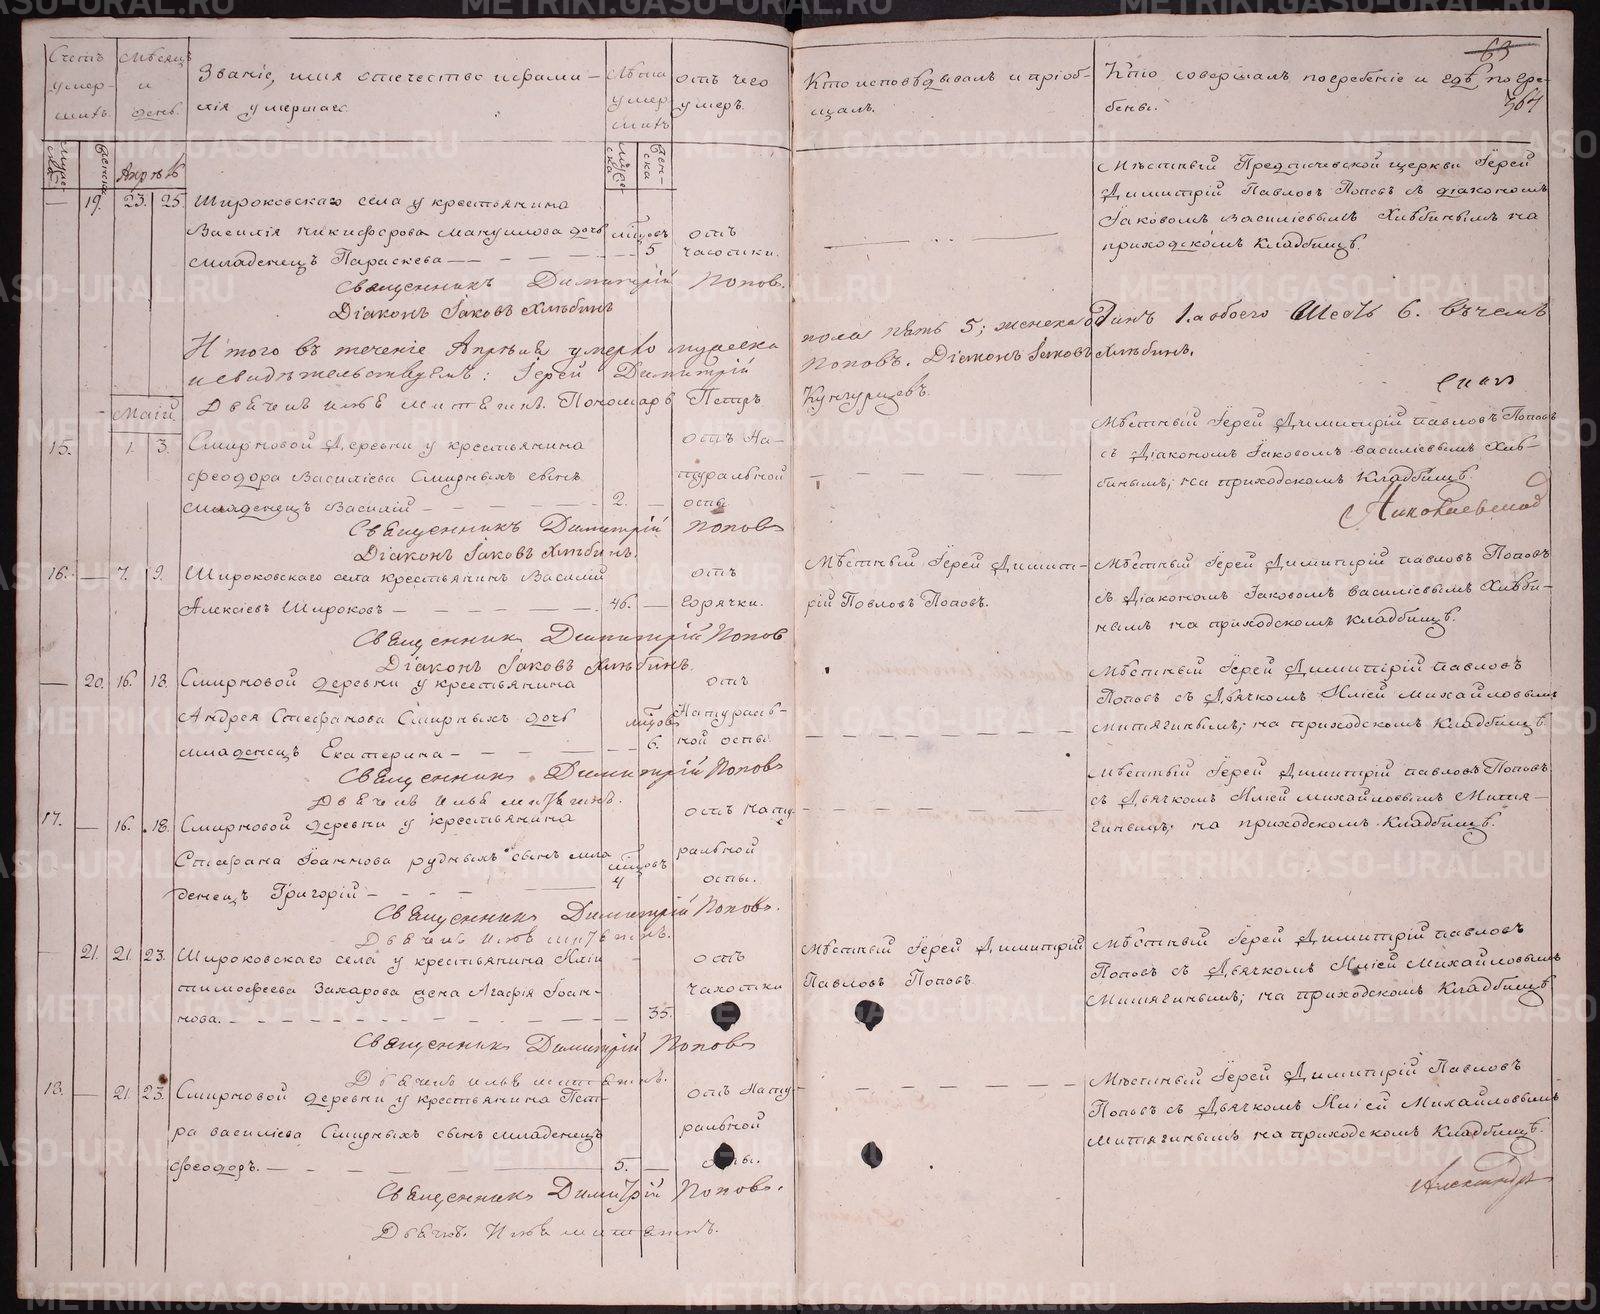 63
364
Счетъ умер-шихъ.
Мѣсяцъ и день.
Званіе, имя отечество и фами-
лія умершаго.
Лѣта умер-шихъ
отъ чего
умеръ.
Кто исповѣдывалъ и пріоб-
щалъ.
Кто совершалъ погребеніе и гдѣ погре-
бены.
Муже-ска
Женска
Апрѣль
Муже-ска
Жен-ска
— 19. 23. 25. Широковскаго села у крестьянина
Василія Никифорова Мануилова дочь
младенецъ Параскева —
мѣсяцовъ
5
отъ
чахотки.
Мѣстный Предтичевской церкви Іерей
Димитрій Павловъ Поповъ съ діакономъ
Іаковомъ Василіевымъ Хлѣбинымъ на
приходскомъ кладбищѣ.
Священникъ Димитрій Поповъ.
Діаконъ Іаковъ Хлѣбинъ
Итого въ теченіе Апрѣля умерло мужеска пола пять 5; женска одинъ 1. а обоего шесть 6. въ чемъ
и свидѣтельствуемъ: Іерей Димитрій Поповъ. Діаконъ Іаковъ Хлѣбинъ.
Дьячекъ Илья Митягинъ. Пономарь Петръ Кунгурцевъ.
Маій.
15. 1. 3. Смирновой деревни у крестьянина
Феодора Василіева Смирныхъ сынъ
младенецъ Василій — 2. —
отъ На-
туральной
оспы
Мѣстный Іерей Димитрій Павловъ Поповъ
съ Діакономъ Іаковомъ Василіевымъ Хлѣ-
бинымъ; на приходскомъ кладбищѣ.
Николаевской
Священникъ Димитрій Поповъ
Діаконъ Іаковъ Хлѣбинъ.
16. — 7. 9. Широковскаго села крестьянинъ Василій
Алексіевъ Широковъ — 46. —
отъ
горячки.
Мѣстный Іерей Димит-
рій Павловъ Поповъ.
Мѣстный Іерей Димитрій Павловъ Поповъ
съ Діакономъ Іаковомъ Василіевымъ Хлѣби-
нымъ на приходскомъ кладбищѣ.
Священникъ Димитрій Поповъ
Діаконъ Іаковъ Хлѣбинъ.
— 20. 16. 18. Смирновой деревни у крестьянина
Андрея Стефанова Смирныхъ дочь
младенецъ Екатерина —
мѣсяцовъ
6.
отъ
Натураль-
ной оспы
Мѣстный Іерей Димитрій Павловъ
Поповъ съ Дьячкомъ Иліей Михайловымъ
Митягинымъ; на приходскомъ кладбищѣ
Священникъ Димитрій Поповъ
Дьячекъ Илья Митягинъ.
17. — 16. 18. Смирновой деревни у крестьянина
Стефана Іоаннова Рудныхъ сынъ мла
денецъ Григорій —
мѣсяцовъ
4
отъ нату-
ральной
оспы.
Мѣстный Іерей Димитрій Павловъ Поповъ
съ Дьячкомъ Иліей Михайловымъ Митя-
гинымъ; на приходскомъ кладбищѣ.
Священникъ Димитрій Поповъ.
Дьячекъ Илья Митягинъ.
— 21. 21. 23. Широковскаго села у крестьянина Иліи
Тимофеева Захарова жена Агафія Іоан-
нова. — 35.
отъ
чахотки
Мѣстный Іерей Димитрій
Павловъ Поповъ
Мѣстный Іерей Димитрій Павловъ
Поповъ съ Дьячкомъ Иліей Михайловымъ
Митягинымъ; на приходскомъ кладбищѣ
Священникъ Димитрій Поповъ
Дьячекъ Илья Митягинъ.
18. — 21. 23. Смирновой деревни у крестьянина Пет-
ра Василіева Смирныхъ сынъ младенецъ
Феодоръ. — 5. —
отъ Нату-
ральной
оспы.
Мѣстный Іерей Димитрій Павловъ
Поповъ съ Дьячкомъ Иліей Михайловымъ
Митягинымъ на приходскомъ кладбищѣ.
Александръ
Священникъ Димитрій Поповъ.
Дьячекъ Илья Митягинъ.
METRIKI.GASO-URAL.RU